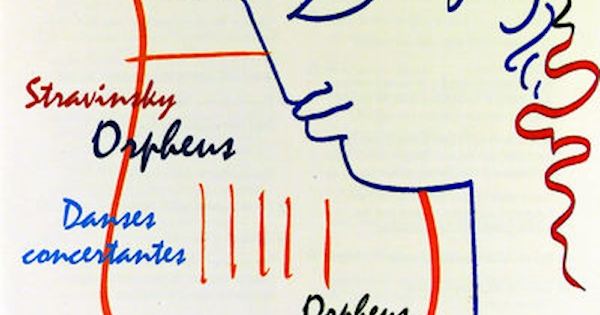 Stravinsky
Orpheus
Danses
concertantes
Orpheus